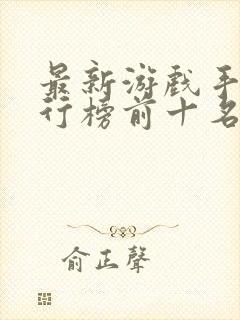 最新游戏手
行榜前十名
俞正聲